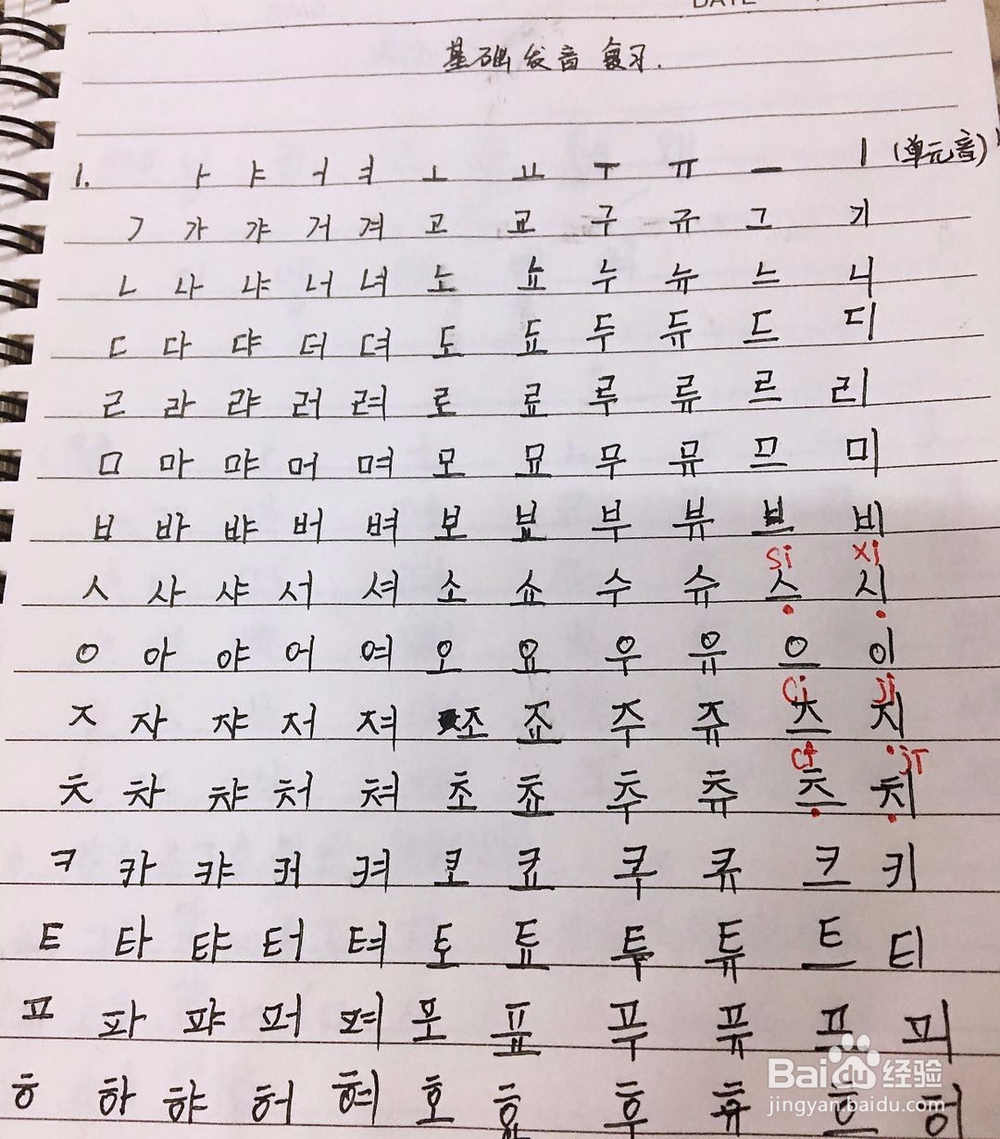 DATE
基础发音复习.
1. ㅏ ㅑ ㅓ ㅕ ㅗ ㅛ ㅜ ㅠ ㅡ ㅣ (单元音)
ㄱ 가 갸 거 겨 고 교 구 규 그 기
ㄴ 나 냐 너 녀 노 뇨 누 뉴 느 니
ㄷ 다 댜 더 뎌 도 됴 두 듀 드 디
ㄹ 라 랴 러 려 로 료 루 류 르 리
ㅁ 마 먀 머 며 모 묘 무 뮤 므 미
ㅂ 바 뱌 버 벼 보 뵤 부 뷰 브 비
si xi
ㅅ 사 샤 서 셔 소 쇼 수 슈 스 시
ㅇ 아 야 어 여 오 요 우 유 으 이
ci ji
ㅈ 자 쟈 저 져 조 죠 주 쥬 즈 지
ㅊ 차 챠 처 쳐 초 쵸 추 츄 츠 치
ㅋ 카 캬 커 켜 코 쿄 쿠 큐 크 키
ㅌ 타 탸 터 텨 토 툐 투 튜 트 티
ㅍ 파 퍄 퍼 펴 포 표 푸 퓨 프 피
ㅎ 하 햐 허 혀 호 효 후 휴 흐
Baidu 经验
jingyan.baidu.com